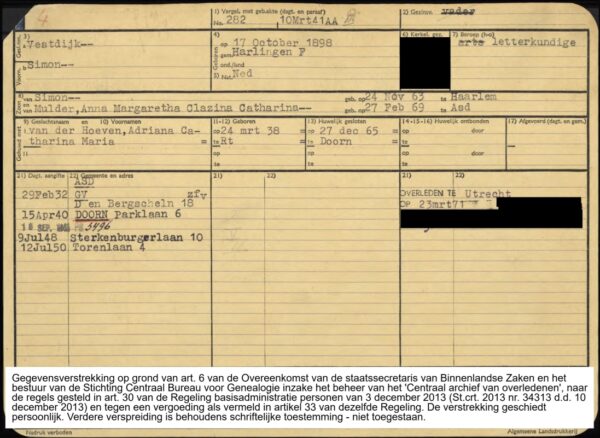 4
1) Vergel. met gebakte (dagt. en paraaf)
No. 282 10Mrt41AA
2) Gezinsv. vader
3)
Vestdijk--
Simon--
4)
op 17 October 1898
te Harlingen F
ond./land
5) Nat. Ned
6) Kerkel. gez.
7) Beroep (h-o)
arts letterkundige
8)
van Simon-- geb. op 24 Nov 63 te Haarlem
en van Mulder, Anna Margaretha Clazina Catharina-- geb. op 27 Feb 69 te Asd
9) Geslachtsnaam en 10) Voornamen
van der Hoeven, Adriana Ca-
tharina Maria =
11-12) Geboren
op 24 mrt 38 =
te Rt =
13) Huwelijk gesloten
op 27 dec 65 =
te Doorn =
14-15-16) Huwelijk ontbonden
op door
te
op door
te
17) Afgevoerd (dagt. en gem.)
21) Dagt. aangifte 22) Gemeente en adres
ASD
29Feb32 GV zfv
D en Bergschein 18
15Apr40 DOORN Parklaan 6
18 SEP. 3496
9Jul48 Sterkenburgerlaan 10
12Jul50 Torenlaan 4
21) 22)
21) 22)
OVERLEDEN TE Utrecht
OP 23mrt71
Gegevensverstrekking op grond van art. 6 van de Overeenkomst van de staatssecretaris van Binnenlandse Zaken en het
bestuur van de Stichting Centraal Bureau voor Genealogie inzake het beheer van het 'Centraal archief van overledenen', naar
de regels gesteld in art. 30 van de Regeling basisadministratie personen van 3 december 2013 (St.crt. 2013 nr. 34313 d.d. 10
december 2013) en tegen een vergoeding als vermeld in artikel 33 van dezelfde Regeling. De verstrekking geschiedt
persoonlijk. Verdere verspreiding is behoudens schriftelijke toestemming - niet toegestaan.
Nadruk verboden
Algemene Landsdrukkerij